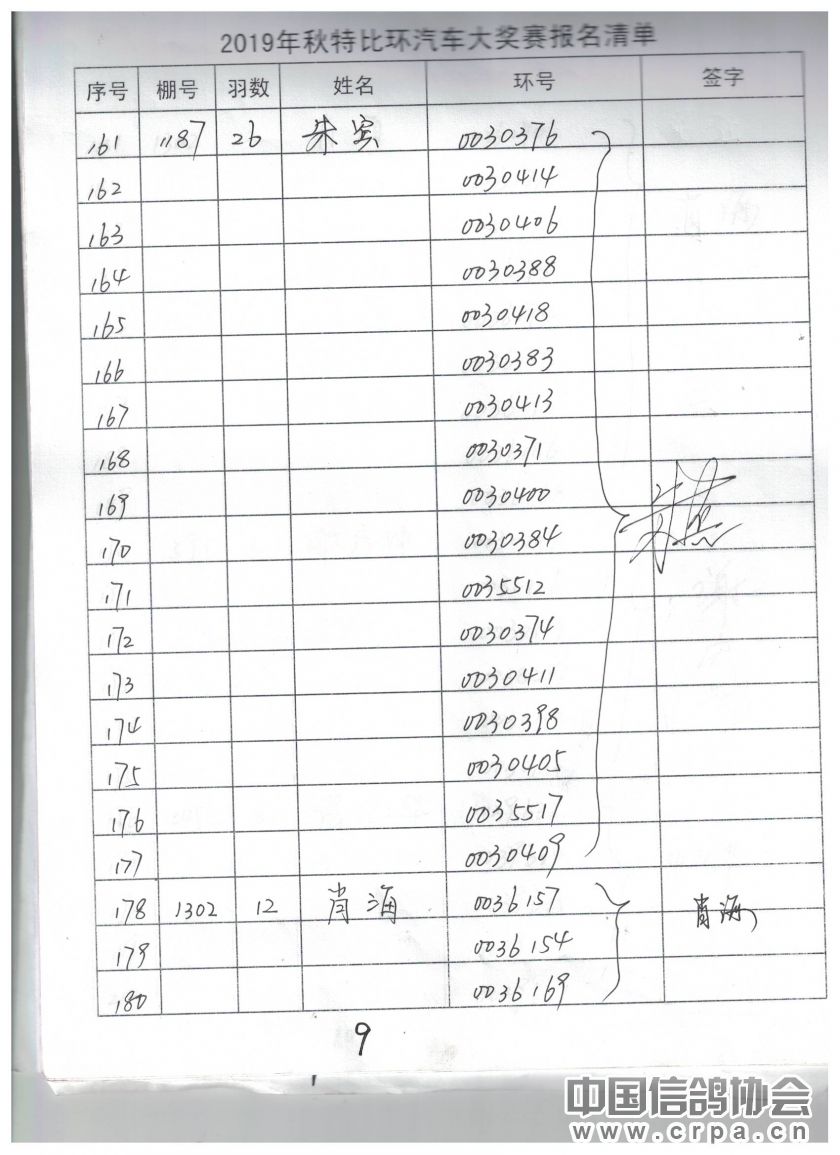 2019年秋特比环汽车大奖赛报名清单
序号 棚号 羽数 姓名 环号 签字
161 1187 26 朱宾 0030376
162 0030414
163 0030406
164 0030388
165 0030418
166 0030383
167 0030413
168 0030371
169 0030400
170 0030384
171 0035512
172 0030374
173 0030411
174 0030398
175 0030405
176 0035517
177 0030409
178 1302 12 肖海 0036157 肖海
179 0036154
180 0036169
9
中国信鸽协会
www.crpa.cn